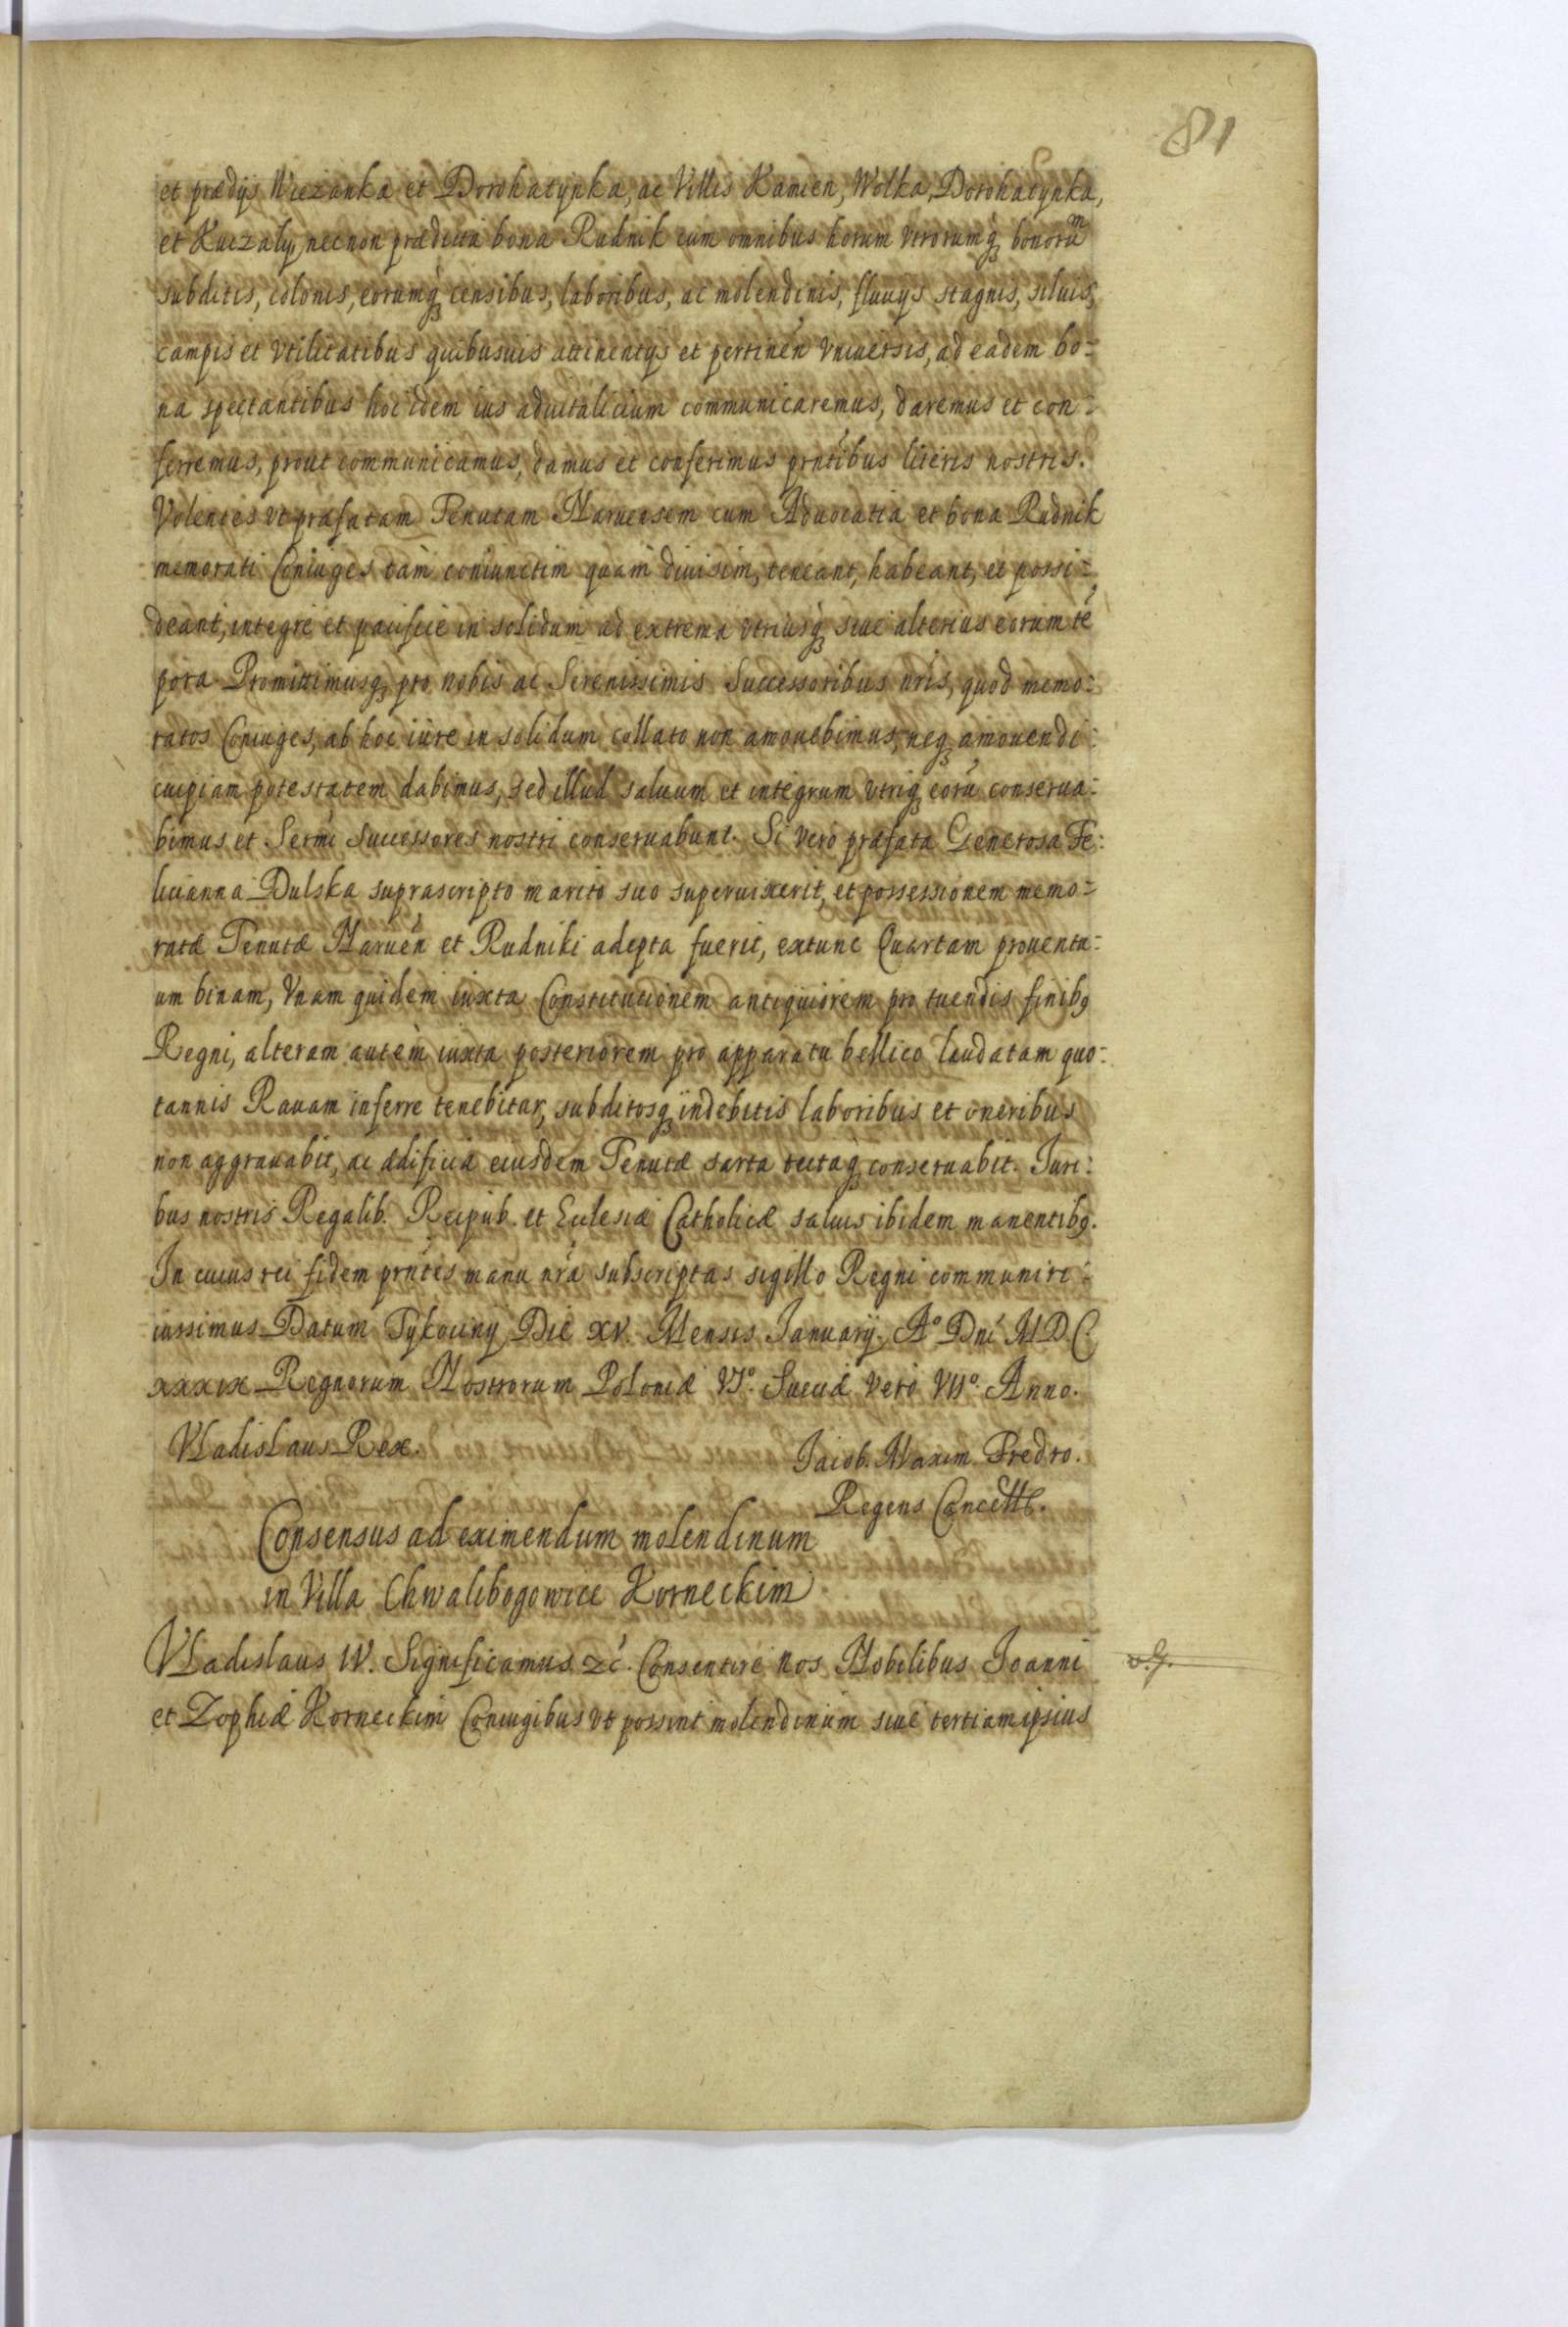 81
et prædijs Niezanka et Dorohatynka, ac Villis Kamien, Wolka, Dorohatynka,
et Kuczaly, necnon prædicta bona Rudnik cum omnibus horum vtrorumq bonorum
subditis, colonis, eorumq censibus, laboribus, ac molendinis, fluuijs stagnis, siluis,
campis et vtilitatibus quibusuis attinentijs et pertinén vniuersis, ad eadem bo=
na spectantibus hoc idem ius aduitalicium communicaremus, daremus et con=
ferremus, prout communicamus, damus et conferimus prntibus literis nostris.
Volentes vt præfatam Tenutam Naruensem cum Aduocatia et bona Rudnik
memorati Coniuges tàm coniunctim quàm diuisim, teneant, habeant, et possi=
deant, integrè et pacificè in solidum ad extrema vtriusq siue alterius eorum té
pora Promittimusq pro nobis ac Serenissimis Successoribus nris, quod memo=
ratos Coniuges, ab hoc iure in solidum collato non amouebimus, neq amouendi
cuipiam potestatem dabimus, sed illud saluum et integrum vtriq eorú conserua=
bimus et Sermi Successores nostri conseruabunt. Si verò præfata Generosa Fe:
licianna Dulska suprascripto marito suo superuixerit, et possessionem memo=
ratæ Tenutæ Naruén et Rudniki adepta fuerit, extunc Quartam prouentu=
um binam, Vnam quidem iuxta Constitutionem antiquiorem pro tuendis finib9
Regni, alteram autèm iuxta posteriorem pro apparatu bellico laudatam quo=
tannis Rauam inferre tenebitur, subditosq indebitis laboribus et oneribus
non aggrauabit, ac ædificia eiusdem Tenutæ sarta tectaq conseruabit. Juri:
bus nostris Regalib. Reipub. et Ecclesiæ Catholicæ saluis ibidem manentib9.
In cuius rei fidem prntes manu nrá subscriptas sigillo Regni communiri
iussimus Datum Tykociny Die XV. Mensis Januarij. A° Dni M D C
XXXIX Regnorum Nostrorum Poloniæ VI°. Sueciæ verò VII°. Anno.
Vladislaus Rex.
Jacob. Maxim. Fredro.
Regens Cancell.
Consensus ad eximendum molendinum
in Villa Chwalibogowice Korneckim
Vladislaus IV. Significamus &c. Consentire nos Nobilibus Joanni
et Zophiæ Korneckim Coniugibus vt possint molendinum siue tertiam ipsius